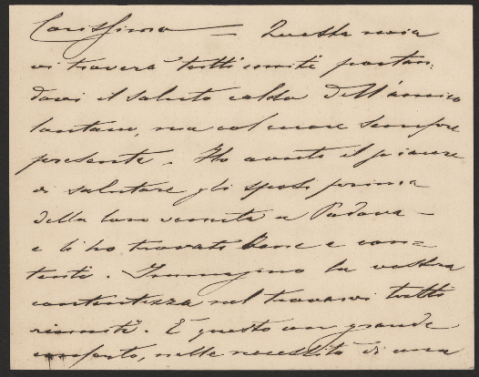 Carissimo = Questa mia
vi troverà tutti uniti portan-
dovi il saluto caldo dell'amico
lontano, ma col cuore sempre
presente. Ho avuto il piacere
di salutare gli sposi prima
della loro venuta a Padova -
e li ho trovati bene e con=
tenti. Immagino la vostra
contentezza nel trovarvi tutti
riuniti. È questo un grande
conforto, nelle necessità di una